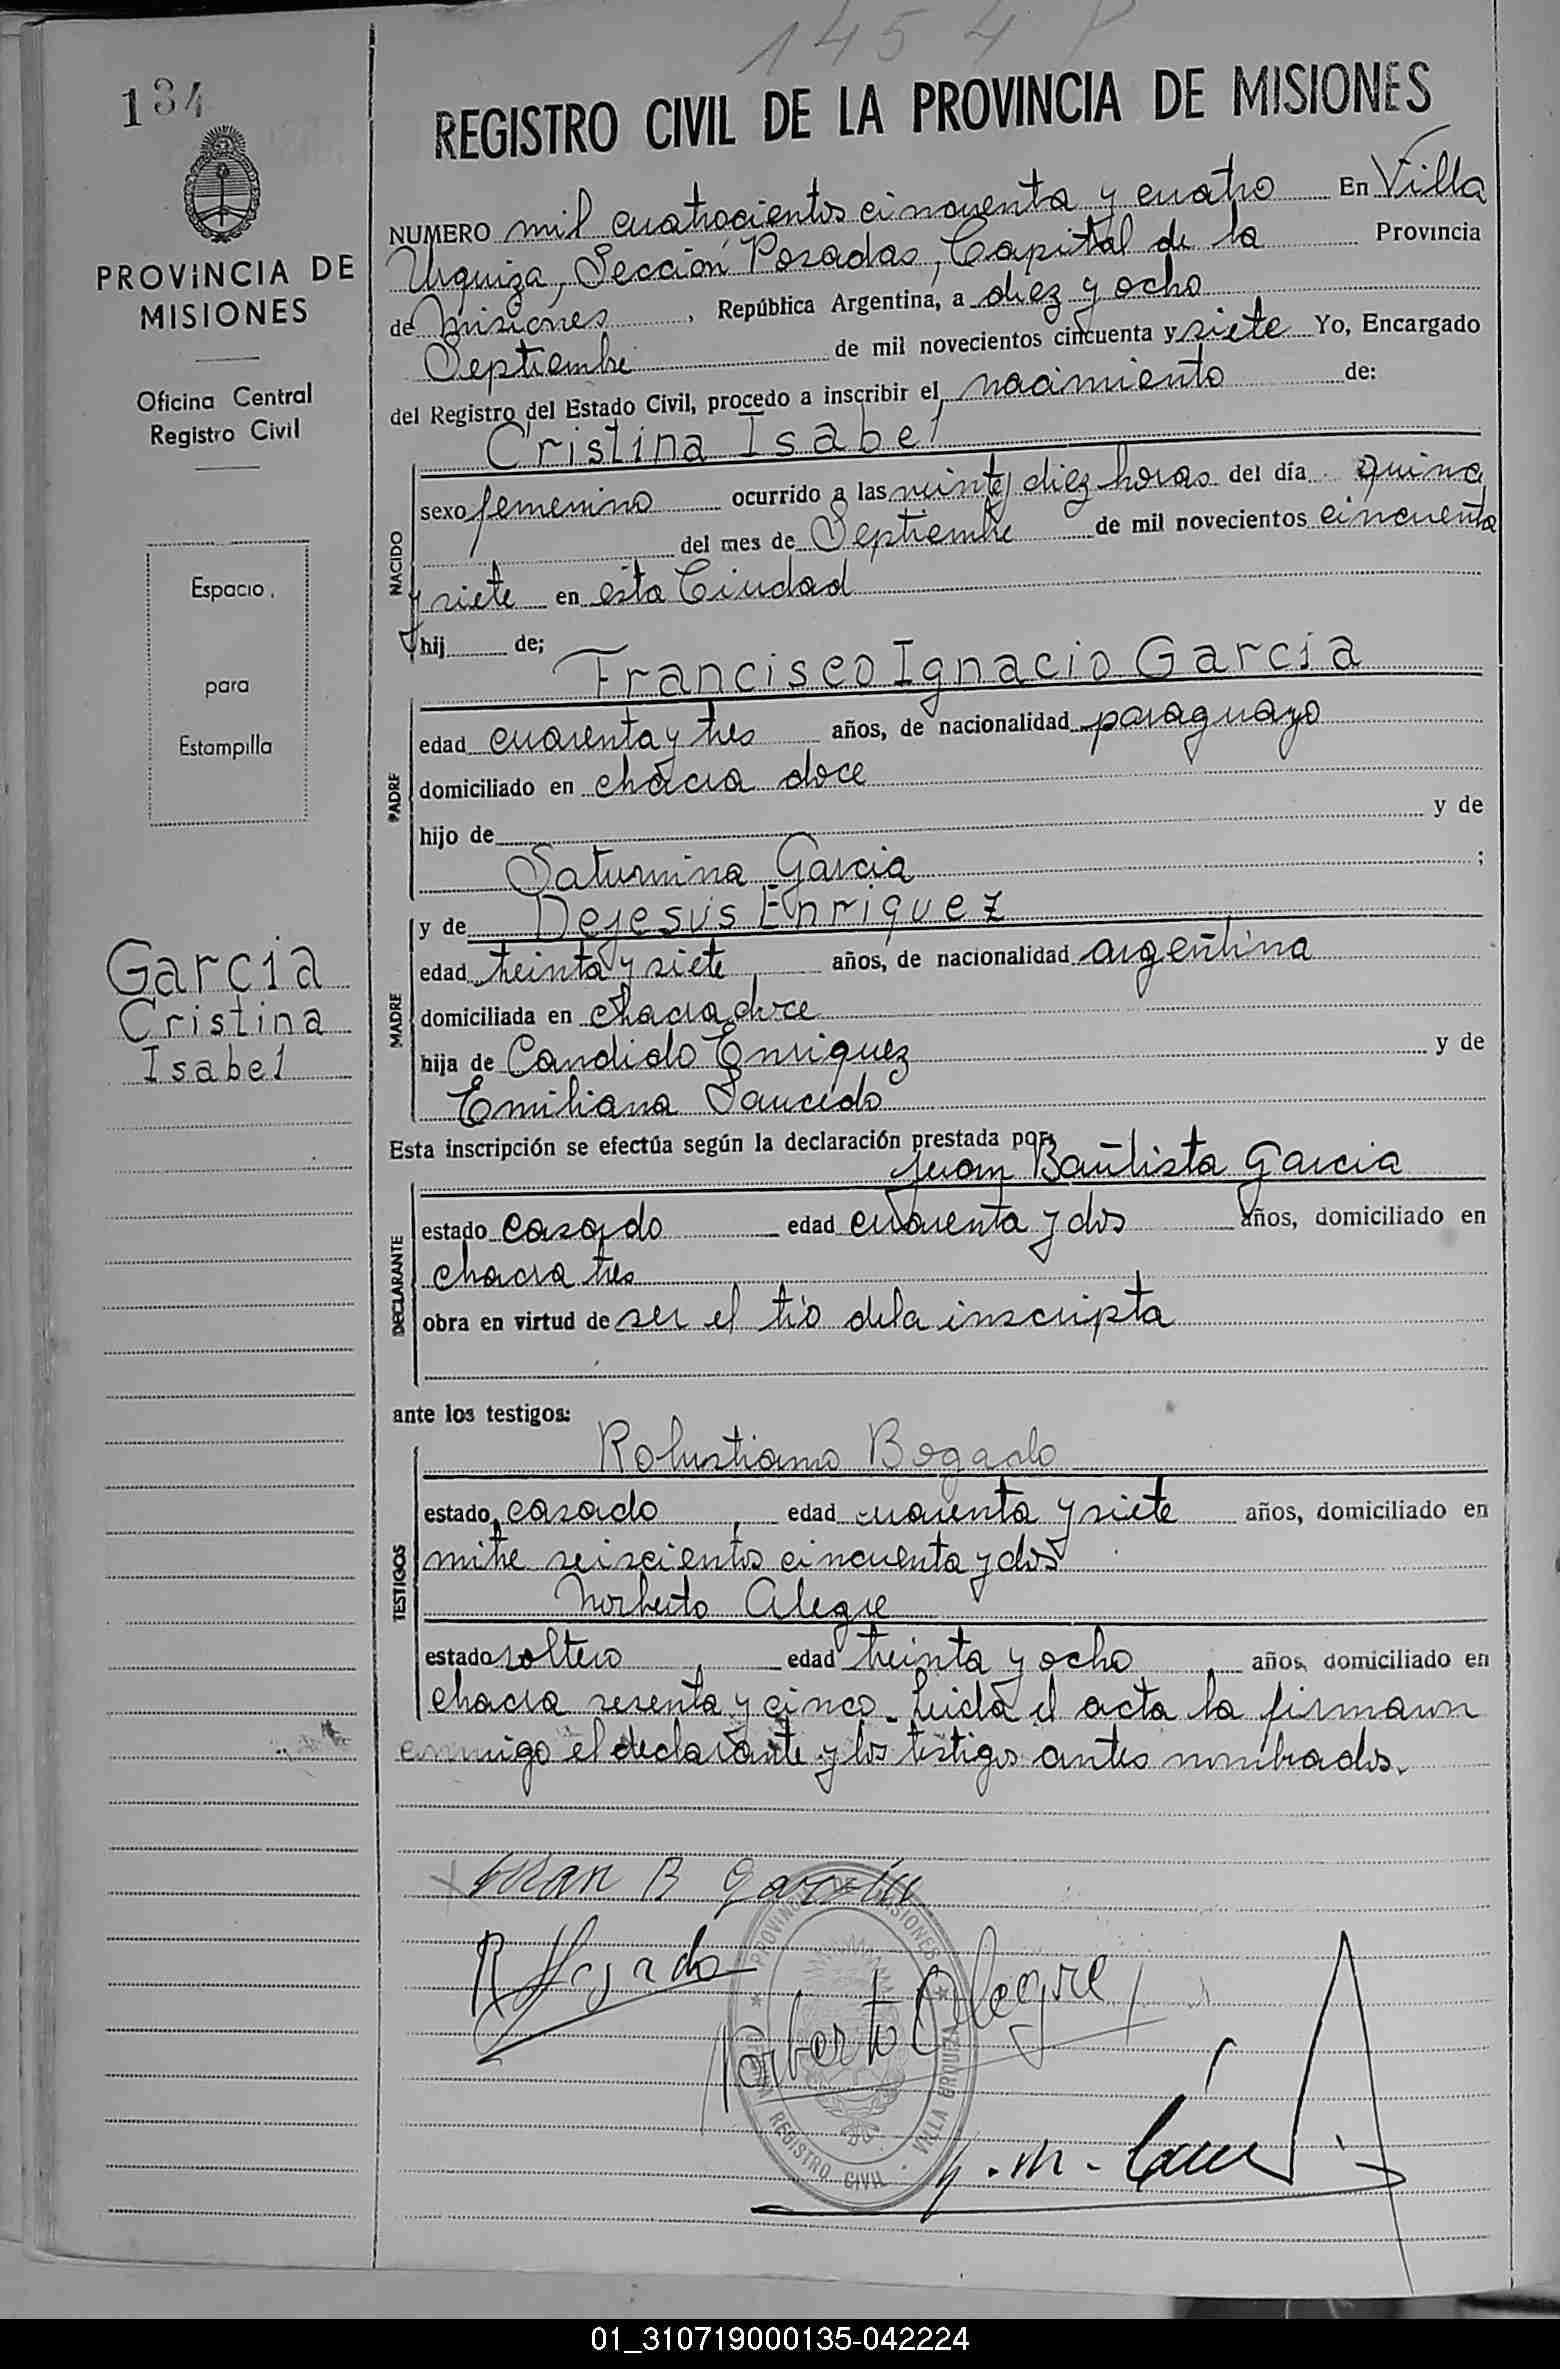 1454
134
REGISTRO CIVIL DE LA PROVINCIA DE MISIONES
PROVINCIA DE
MISIONES
Oficina Central
Registro Civil
Espacio
para
Estampilla
García
Cristina
Isabel
NUMERO mil cuatrocientos cincuenta y cuatro En Villa
Urquiza, Sección Posadas, Capital de la Provincia
de Misiones, República Argentina, a diez y ocho
Septiembre de mil novecientos cincuenta y siete Yo, Encargado
del Registro del Estado Civil, procedo a inscribir el nacimiento de:
Cristina Isabel
NACIDO
sexo femenino ocurrido a las veinte diez horas del día quince
del mes de Septiembre de mil novecientos cincuenta
y siete en esta Ciudad
hij de;
Francisco Ignacio García
PADRE
edad cuarenta y tres años, de nacionalidad paraguayo
domiciliado en chacra doce
hijo de y de
Saturnina Garcia ;
y de Dejesús Enriquez
MADRE
edad treinta y siete años, de nacionalidad argentina
domiciliada en chacra doce
hija de Candido Enriquez y de
Emiliana Saucedo
Esta inscripción se efectúa según la declaración prestada por:
Juan Bautista Garcia
DECLARANTE
estado casado edad cuarenta y dos años, domiciliado en
chacra tres
obra en virtud de ser el tío de la inscripta
ante los testigos:
Robustiano Bogado
TESTIGOS
estado casado, edad cuarenta y siete años, domiciliado en
mitre seiscientos cincuenta y dos
Norberto Alegre
estado soltero, edad treinta y ocho, años, domiciliado en
chacra sesenta y cinco. Leida el acta la firmaron
conmigo el declarante y los testigos antes nombrados.
Juan B García
R Bogado
Norberto Alegre
PROVINCIA DE MISIONES
REGISTRO CIVIL - VILLA URQUIZA
01_310719000135-042224